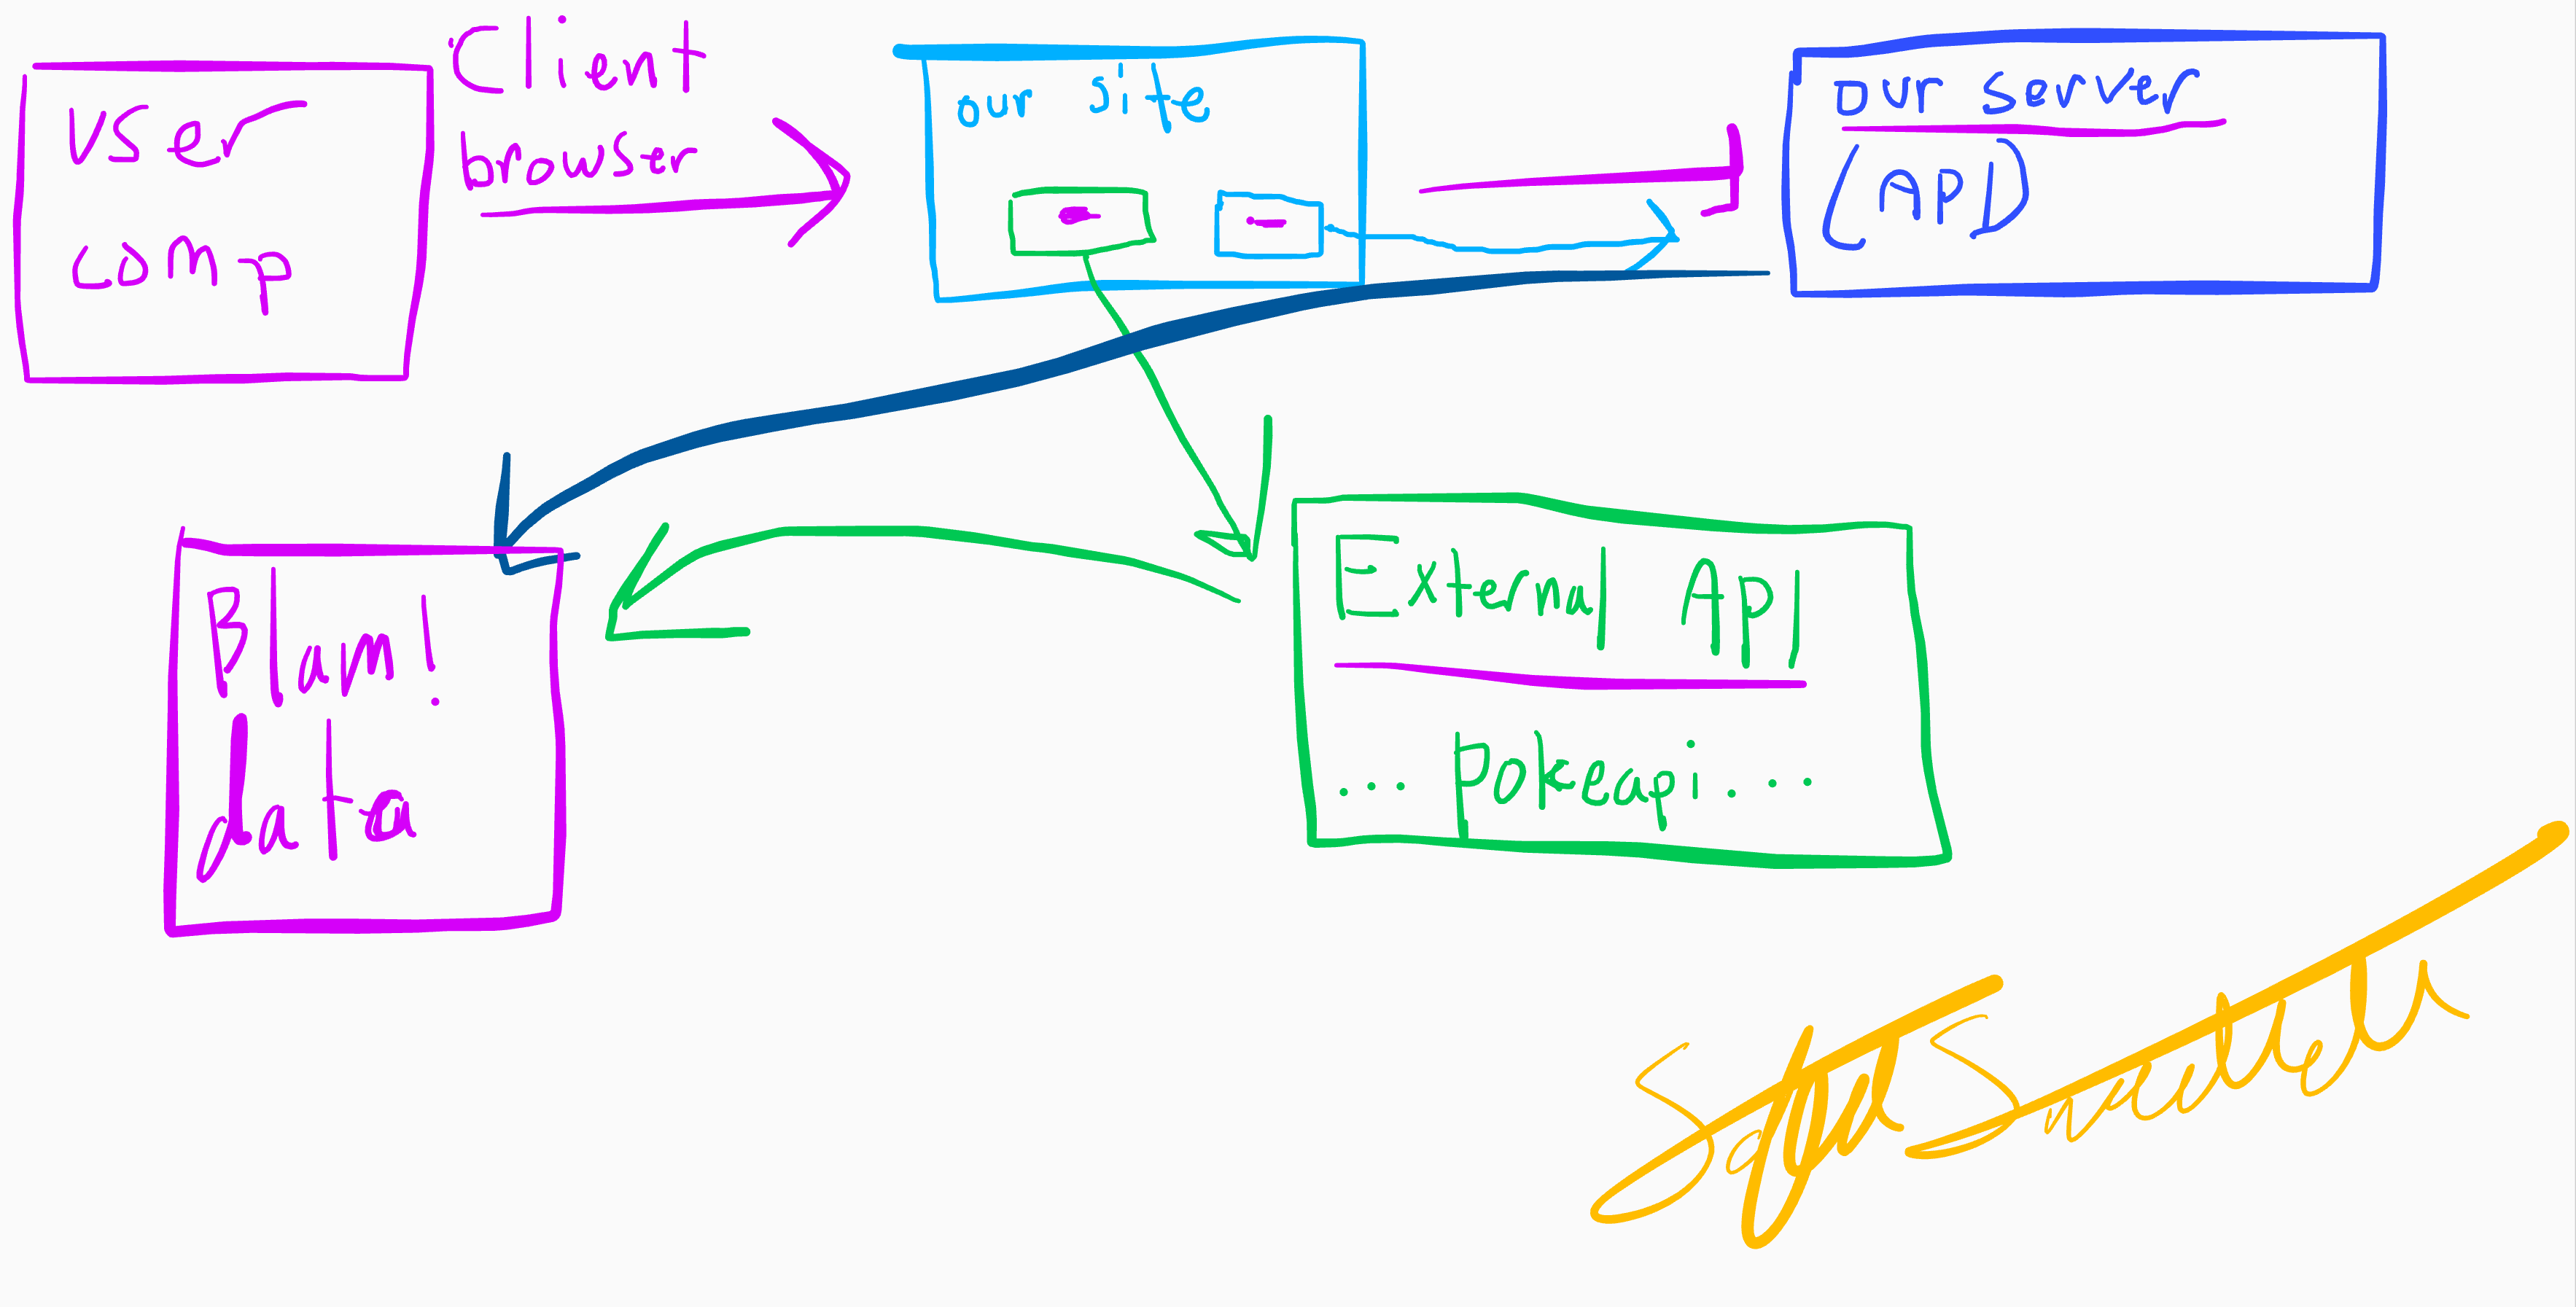 user
comp
Client
browser
our site
our server
(API)
Blam!
data
External API
... pokeapi....